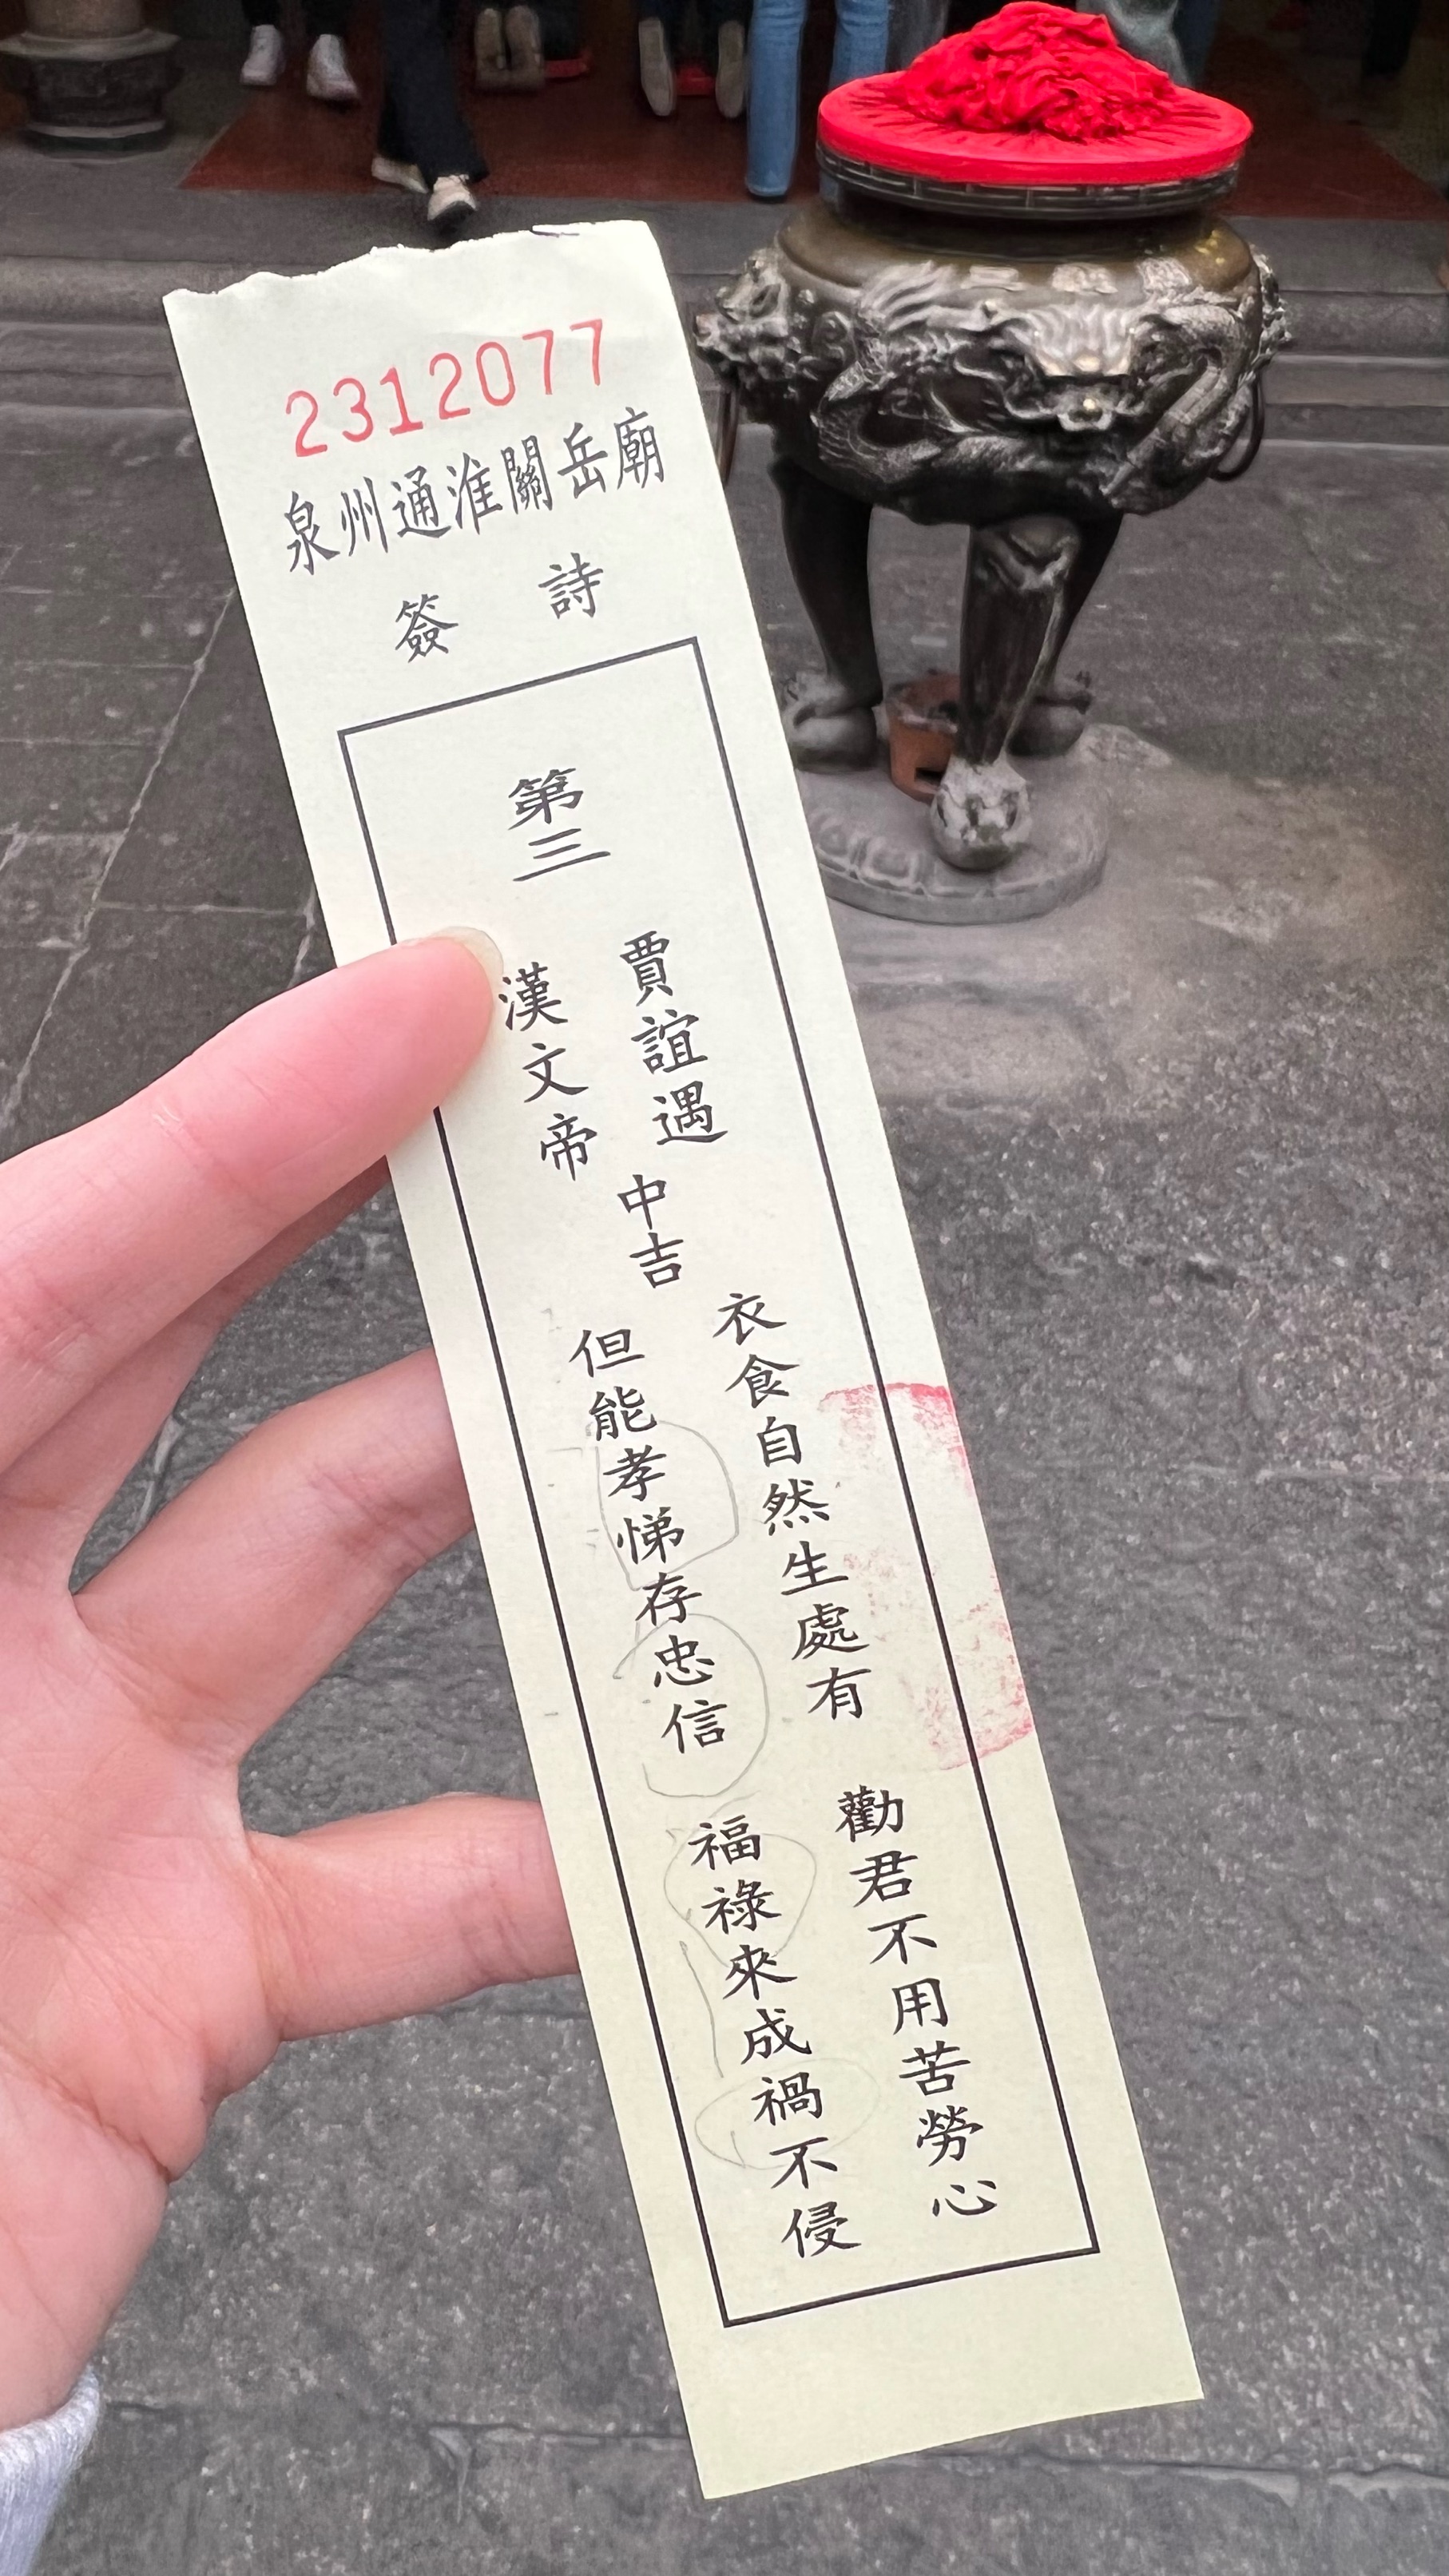 2312077
泉州通淮關岳廟
簽詩
第三
賈誼遇
漢文帝
中吉
衣食自然生處有
勸君不用苦勞心
但能孝悌存忠信
福祿來成禍不侵